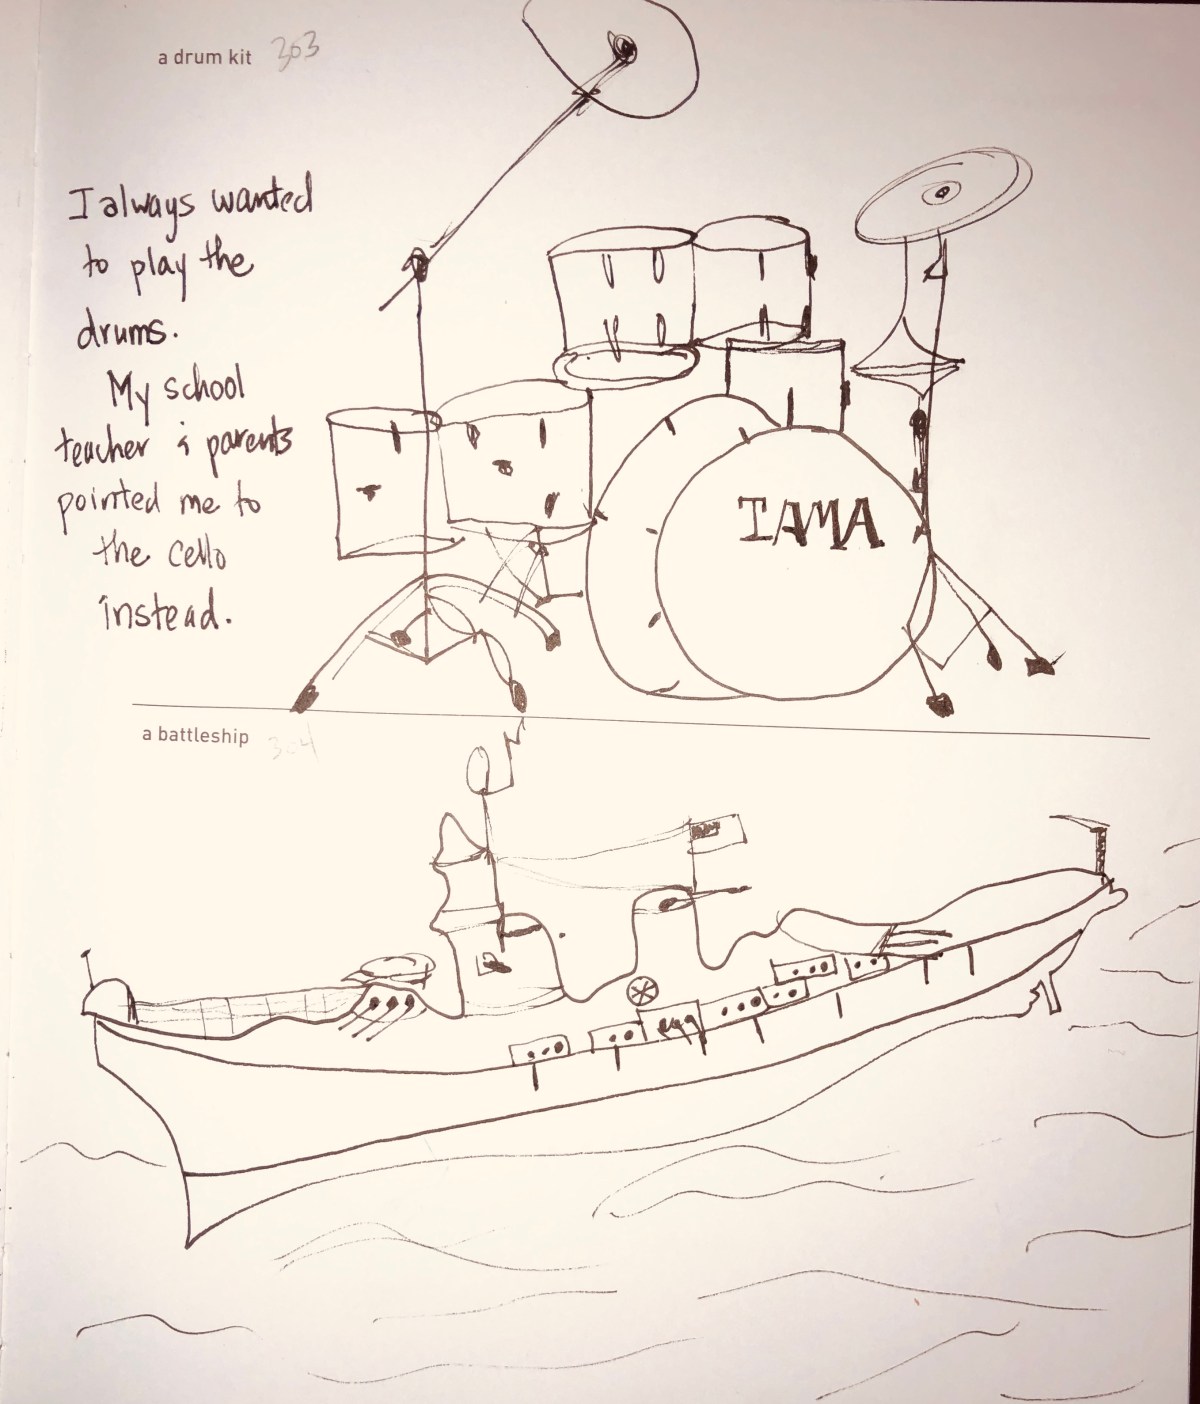 a drum kit 303
I always wanted
to play the
drums.
My school
teacher & parents
pointed me to
the cello
instead.
TAMA
a battleship 304